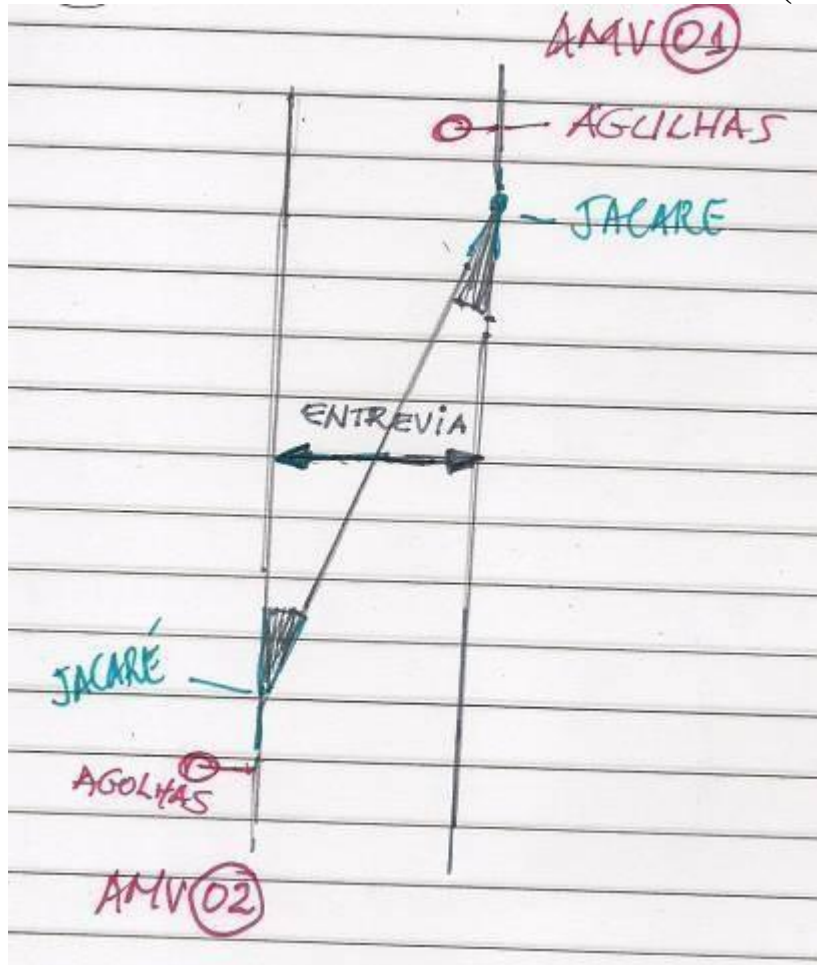 AMV 01
AGULHAS
JACARE
ENTREVIA
JACARÉ
AGOLHAS
AMV 02